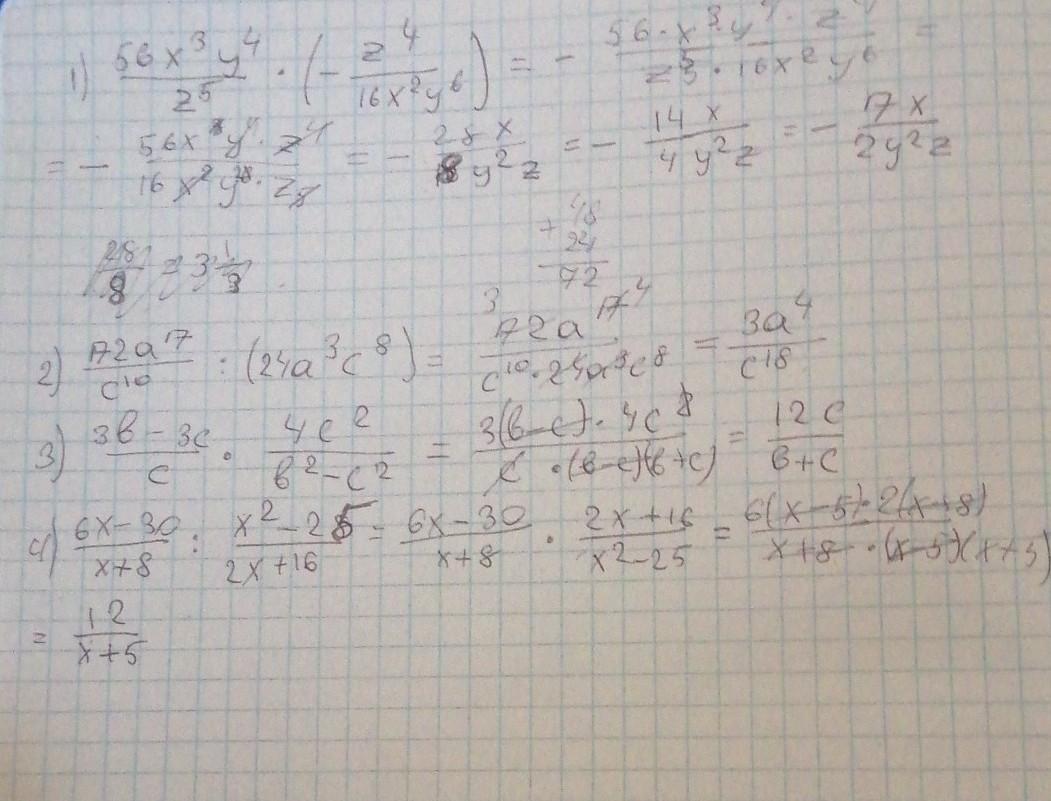 1) 56x³y⁴/z⁵ · (− z⁴/16x²y⁶) = − 56·x³y⁴·z⁴/z⁵·16x²y⁶ =
= − 56x³y⁴·z⁴/16x²y⁶·z⁵ = − 28x/8y²z = − 14x/4y²z = − 17x/2y²z
28/8 = 3 1/3
+ 48
24
72
2) 72a⁷/c¹⁰ : (24a³c⁸) = 3 72a⁷ ⁴/c¹⁰·24a³c⁸ = 3a⁴/c¹⁸
3) 3в−3c/c · 4c²/в²−c² = 3(в−c)·4c²/c·(в−c)(в+c) = 12c/в+c
4) 6x−30/x+8 : x²−25/2x+16 = 6x−30/x+8 · 2x+16/x²−25 = 6(x−5)·2(x+8)/x+8·(x−5)(x+5)
= 12/x+5